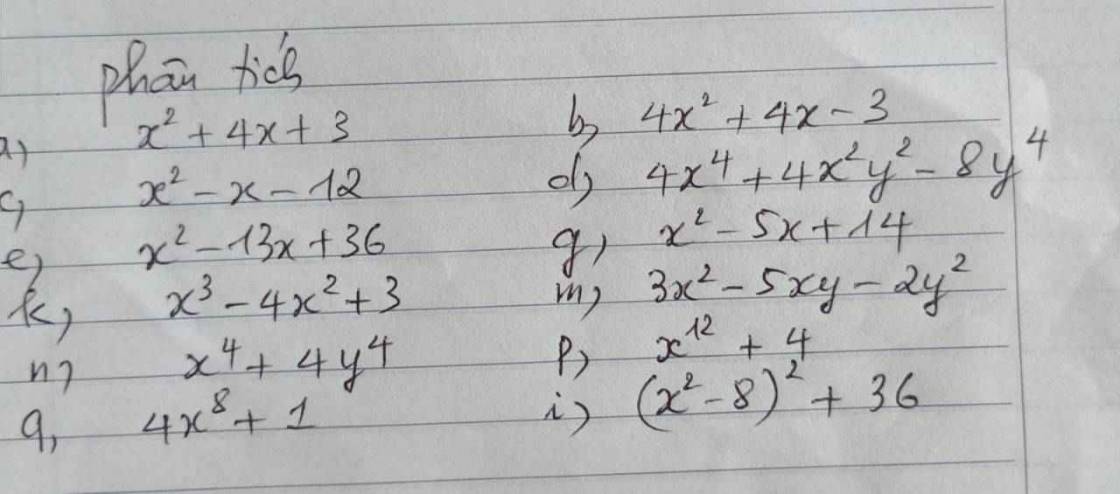 phân tích
a) x² + 4x + 3 b, 4x² + 4x - 3
c, x² - x - 12 d, 4x⁴ + 4x²y² - 8y⁴
e, x² - 13x + 36 g, x² - 5x + 14
k, x³ - 4x² + 3 m, 3x² - 5xy - 2y²
n, x⁴ + 4y⁴ p, x¹² + 4
q, 4x⁸ + 1 i, (x² - 8)² + 36